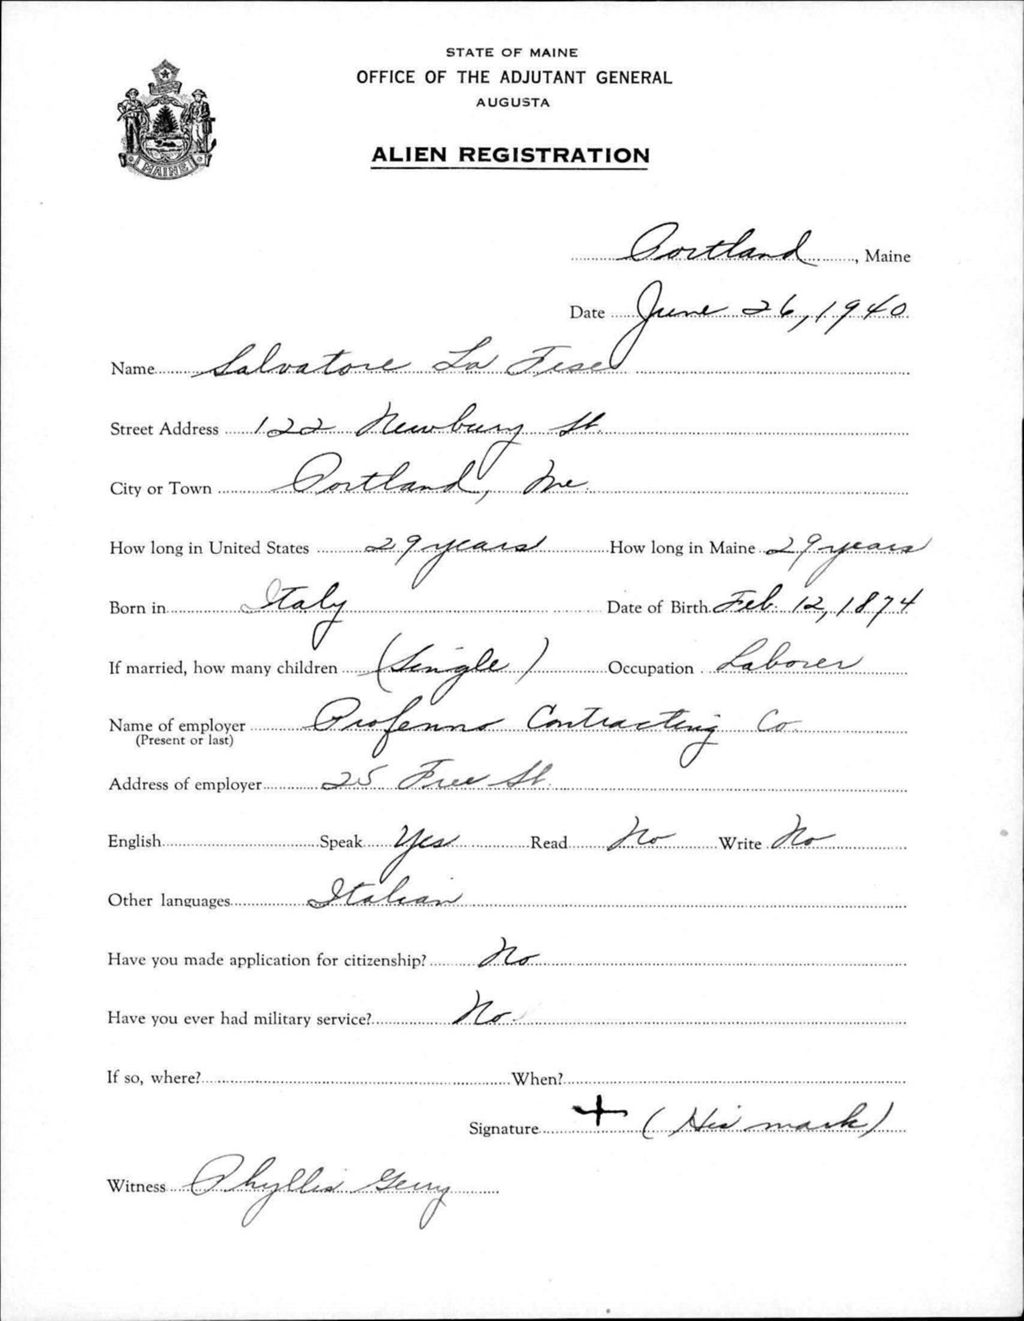 STATE OF MAINE
OFFICE OF THE ADJUTANT GENERAL
AUGUSTA
ALIEN REGISTRATION
MAINE
Portland, Maine
Date June 26, 1940
Name Salvatore La Fese
Street Address 122 Newbury St.
City or Town Portland, Me.
How long in United States 29 years How long in Maine 29 years
Born in Italy Date of Birth Feb. 12, 1874
If married, how many children (Single) Occupation Laborer
Name of employer Profenno Contracting Co
(Present or last)
Address of employer 25 Free St.
English Speak Yes Read No Write No
Other languages Italian
Have you made application for citizenship? No
Have you ever had military service? No.
If so, where? When?
Signature + (His mark)
Witness Phyllis Gerry